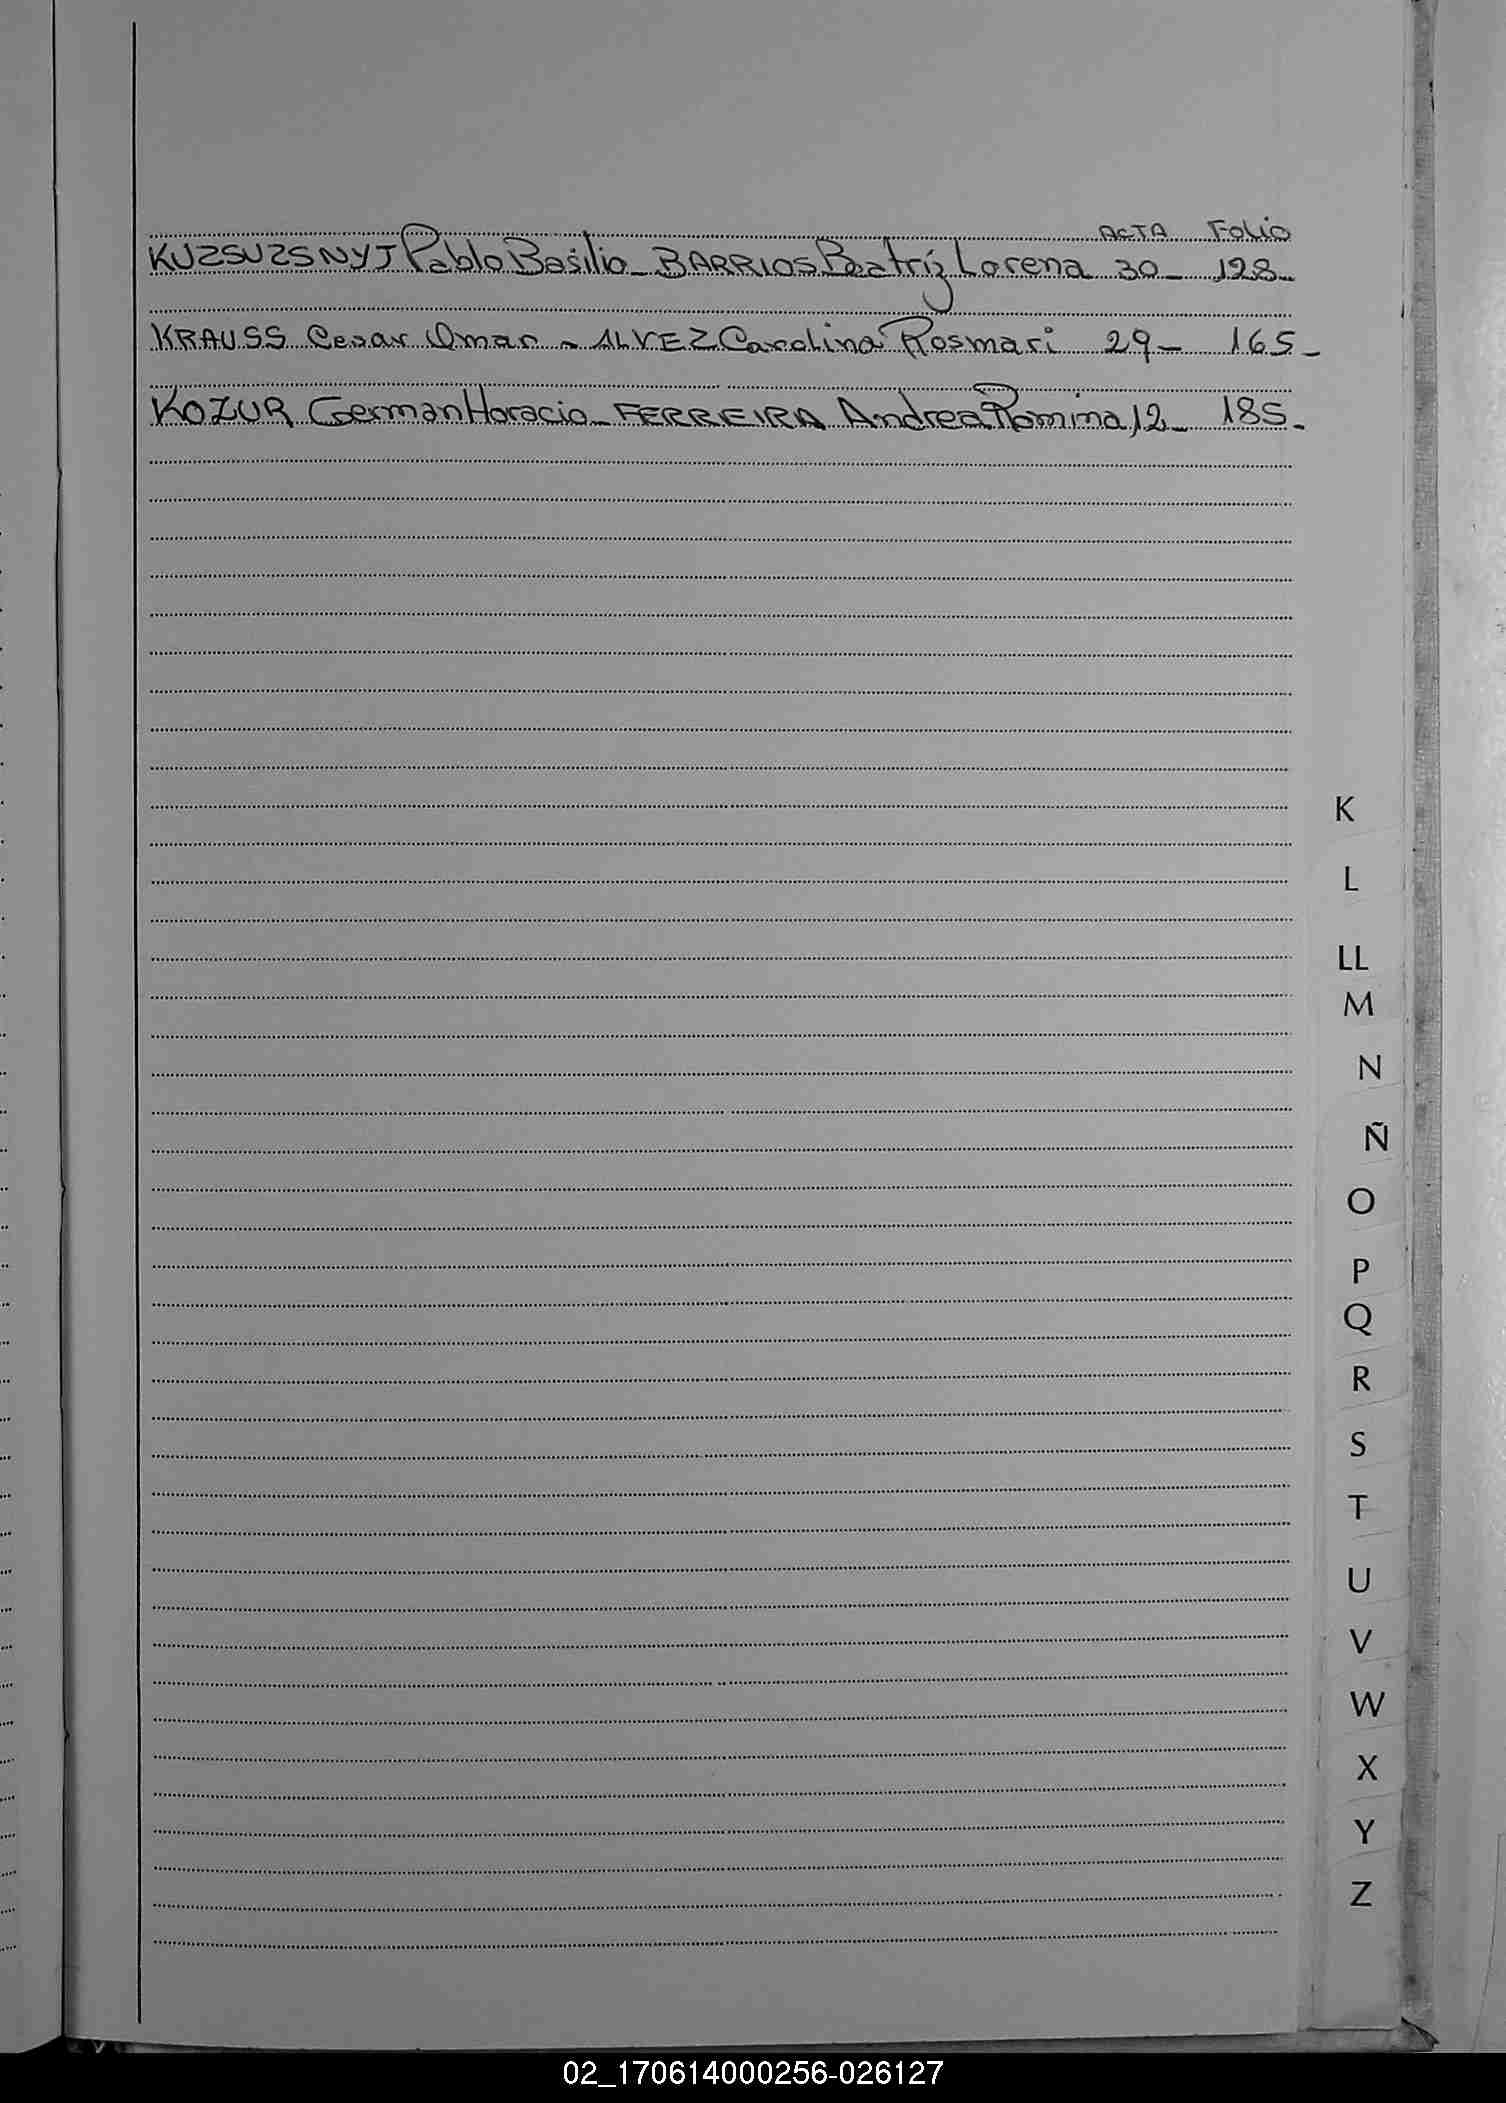 ACTA FOLIO
KUZSUZSNYJ Pablo Basilio - BARRIOS Beatríz Lorena 30 - 128 -
KRAUSS Cesar Omar - ALVEZ Carolina Rosmari 29 - 165 -
KOZUR German Horacio - FERREIRA Andrea Romina 12 - 185 -
K
L
LL
M
N
Ñ
O
P
Q
R
S
T
U
V
W
X
Y
Z
02_170614000256-026127